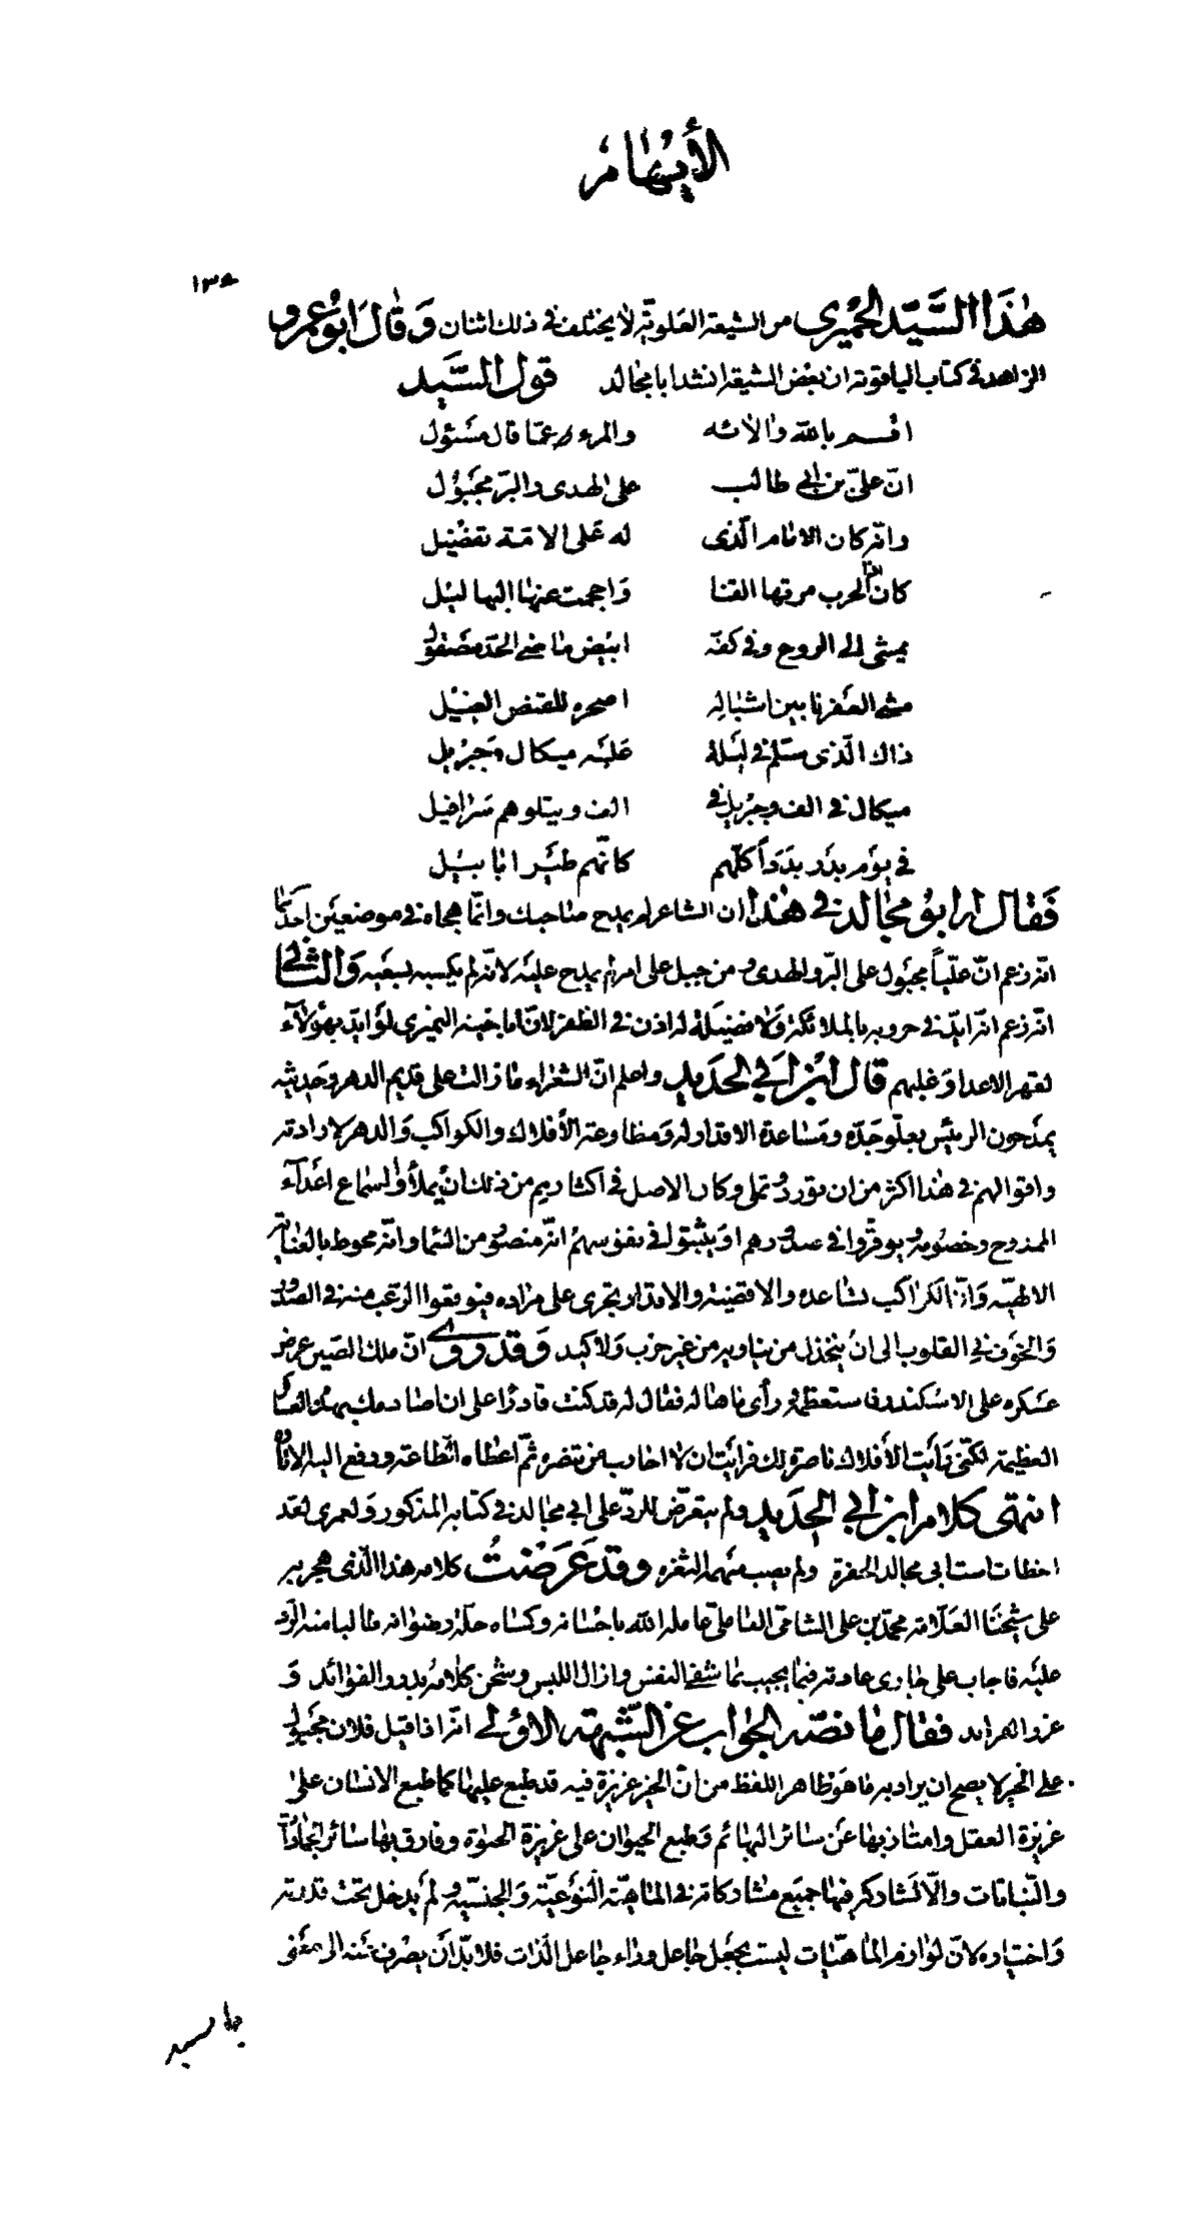 الأيهام
هٰذا السَّيّد الحِمْيرى من الشيعة العَلويّة لا يختلف فى ذلك اثنان وَقٰالَ ابُو عمرو
الزاهد فى كتاب الياقوتة ان بعض الشيعة انشد ابا مجالد قول السَّيد
اقسم باللّه والائه والمرء عمّا قال مَسْئول
انّ علىّ بن ابى طالب على الهدى والبرّ مجبَوُل
وانّه كان الامام الّذى له عَلى الامّة تفضيل
كان اذا الحرب مرتها القنا وَاحجمت عنها البهاليل
يمشى الى الروح وفى كفّه ابيض مٰاضى الحدّ مصَقول
مشى العفرنا بين اشبالِه اصحره للقنص الغيل
ذاك الّذى سَلّم فى ليَلة عَليَه ميكال وَجبرْيل
ميكال فى الف وجبرْيل فى الف ويتلوهم سَرافيل
فى يَوم بدَر بدَدَاً كلّهم كانّهم طيَر ابابيل
فَقال ابوُ مجٰالد فى هٰذا ان الشاعر لم يمدح صاحبك وانّما هجاه فى موضعيَن احدهما
انّه زعم انّ عليّاً مجَبول على البرّ والهدى ومن جبل على امر لم يمدح عليَه لانّه لم يكسبه بسعَيه وَالثانى
انّه زعم انّه ايّد فى حروبه بالملائكة وَلا فضيَلة له اذن فى الظفر لانّ ابا حيّة النميرى لوَ ايّد بهؤلآء
لقهر الاعداء وَغلبهم قال ابنُ ابَى الحَديد واعلم انّ الشعَراء مٰا زالت على قديم الدهر وحَديثه
يمدَحون الرئيس بعلوّ جَدّه ومسَاعدة الاقدار له وَمطاوعة الأفلاك والكواكب وَالدهر لارادته
واقوالهم فى هٰذا اكثر من ان نورد وتملى وكان الاصل فى اكثارهم من ذلك انْ يملأوا اسماع اعَدآء
الممدوح وخصُومه ويوقّروا فى صدورهم اوَ يثبتوا فى نفوسهم انّه منصُور من السمٰا وانّه محوط بالعنٰاية
الالهيّة وَانّ الكواكب تسٰاعده والاقضية والاقدار تجرى على مرٰاده فيوقعوا الرّعب منه فى الصدُور
وَالخوَف فى القلوب الى انْ ينخذل من يناويه من غير حَرب وَلا كيد وَقد روى انّ ملك الصّين عرض
عسَكره على الاسكندر فاستعظمه ورأى مٰا هاله فقال له قد كنت قادرًا على ان اصٰادمك بهذه العسٰاكر
العظيمة لكنّى رَأيت الأفلاك ناصرة لك فرايت ان لا احارب من تنصره ثمّ اعَطاه الطّاعة ودفع اليه الاتاوة
انتهى كلام ابن ابى الحَديد ولم يتعرّض للردّ على ابى مجالد فى كتابه المذكور وَلعمرى لقد
اخطات است ابى مجالد الحفرة ولم يصب سَهمه الثغره وقد عَرضْتُ كلامه هذا الّذى هجر به
على شيخنَا العَلّامه محمّد بن على الشامىّ العٰاملىّ عامله اللّه باحْسانه وكسَاه حلّة رضوانه طٰالبا منه الرّد
عليَه فاجاب على جٰارى عادته فيمٰا يجيب بمٰا شفى النفس وازال اللبس وشحن كلٰامه بدور الفوٰائد وَ
غرو الفرايد فقال مٰا نصّه الجوٰاب عن الشّبهة الاوُلى انّه اذا قيل فلان مجَبوُل
على الخير لا يصح ان يراد به مٰا هوَ ظاهر اللفظ من انّ الخير غريزة فيه قد طبع عليهٰا كما طبع الانسٰان على
غريزة العقل وامتٰاز بهٰا عَن سٰائر البهٰائم وَطبع الحيوٰان على غريزة الحيٰوة وفارق بهٰا سائر الجمٰادٰات
والنّباتات والّا لشَاركه فيهٰا جميَع مشٰاركاته فى المٰاهيّة النّوعَيّة وَالجنسيّة ولم يدخل تحَت قدرته
وَاختياره لانّ لوٰازم المٰاهيّٰات ليست بجعَل جٰاعل ورٰاء جٰاعل الذّات فلا بدّ انَ يصرف عَنه الى معَنى